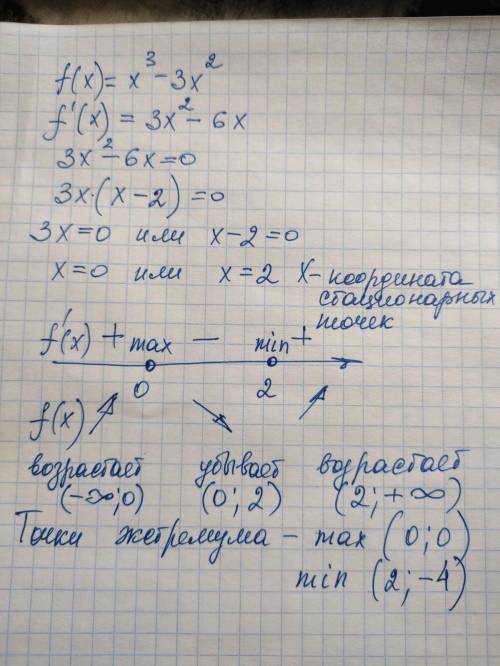 f(x) = x³ - 3x²
f'(x) = 3x² - 6x
3x² - 6x = 0
3x·(x - 2) = 0
3x = 0 или x - 2 = 0
x = 0 или x = 2 X - координата
стационарных
точек
f'(x) + max - min +
0 2
f(x) ↗ ↘ ↗
возрастает убывает возрастает
(-∞; 0) (0; 2) (2; +∞)
Точки экстремума - max (0; 0)
min (2; -4)